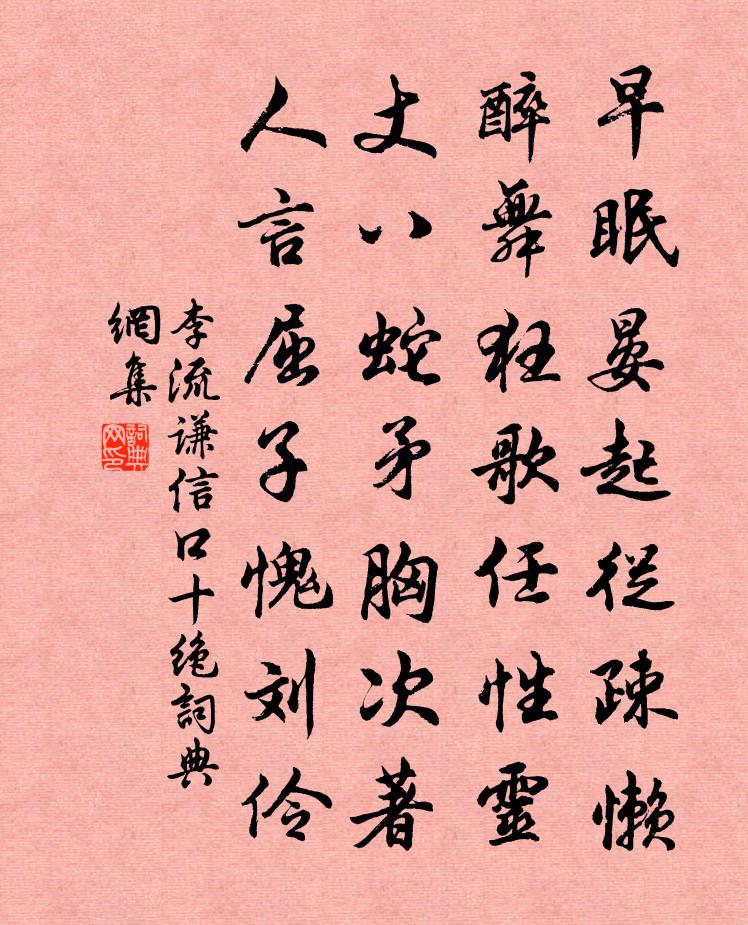 早眠晏起從疎懶
醉舞狂歌任性靈
丈八蛇矛胸次著
人言屈子愧刘伶
李流謙信口十绝詞典
網集
詞典
网印